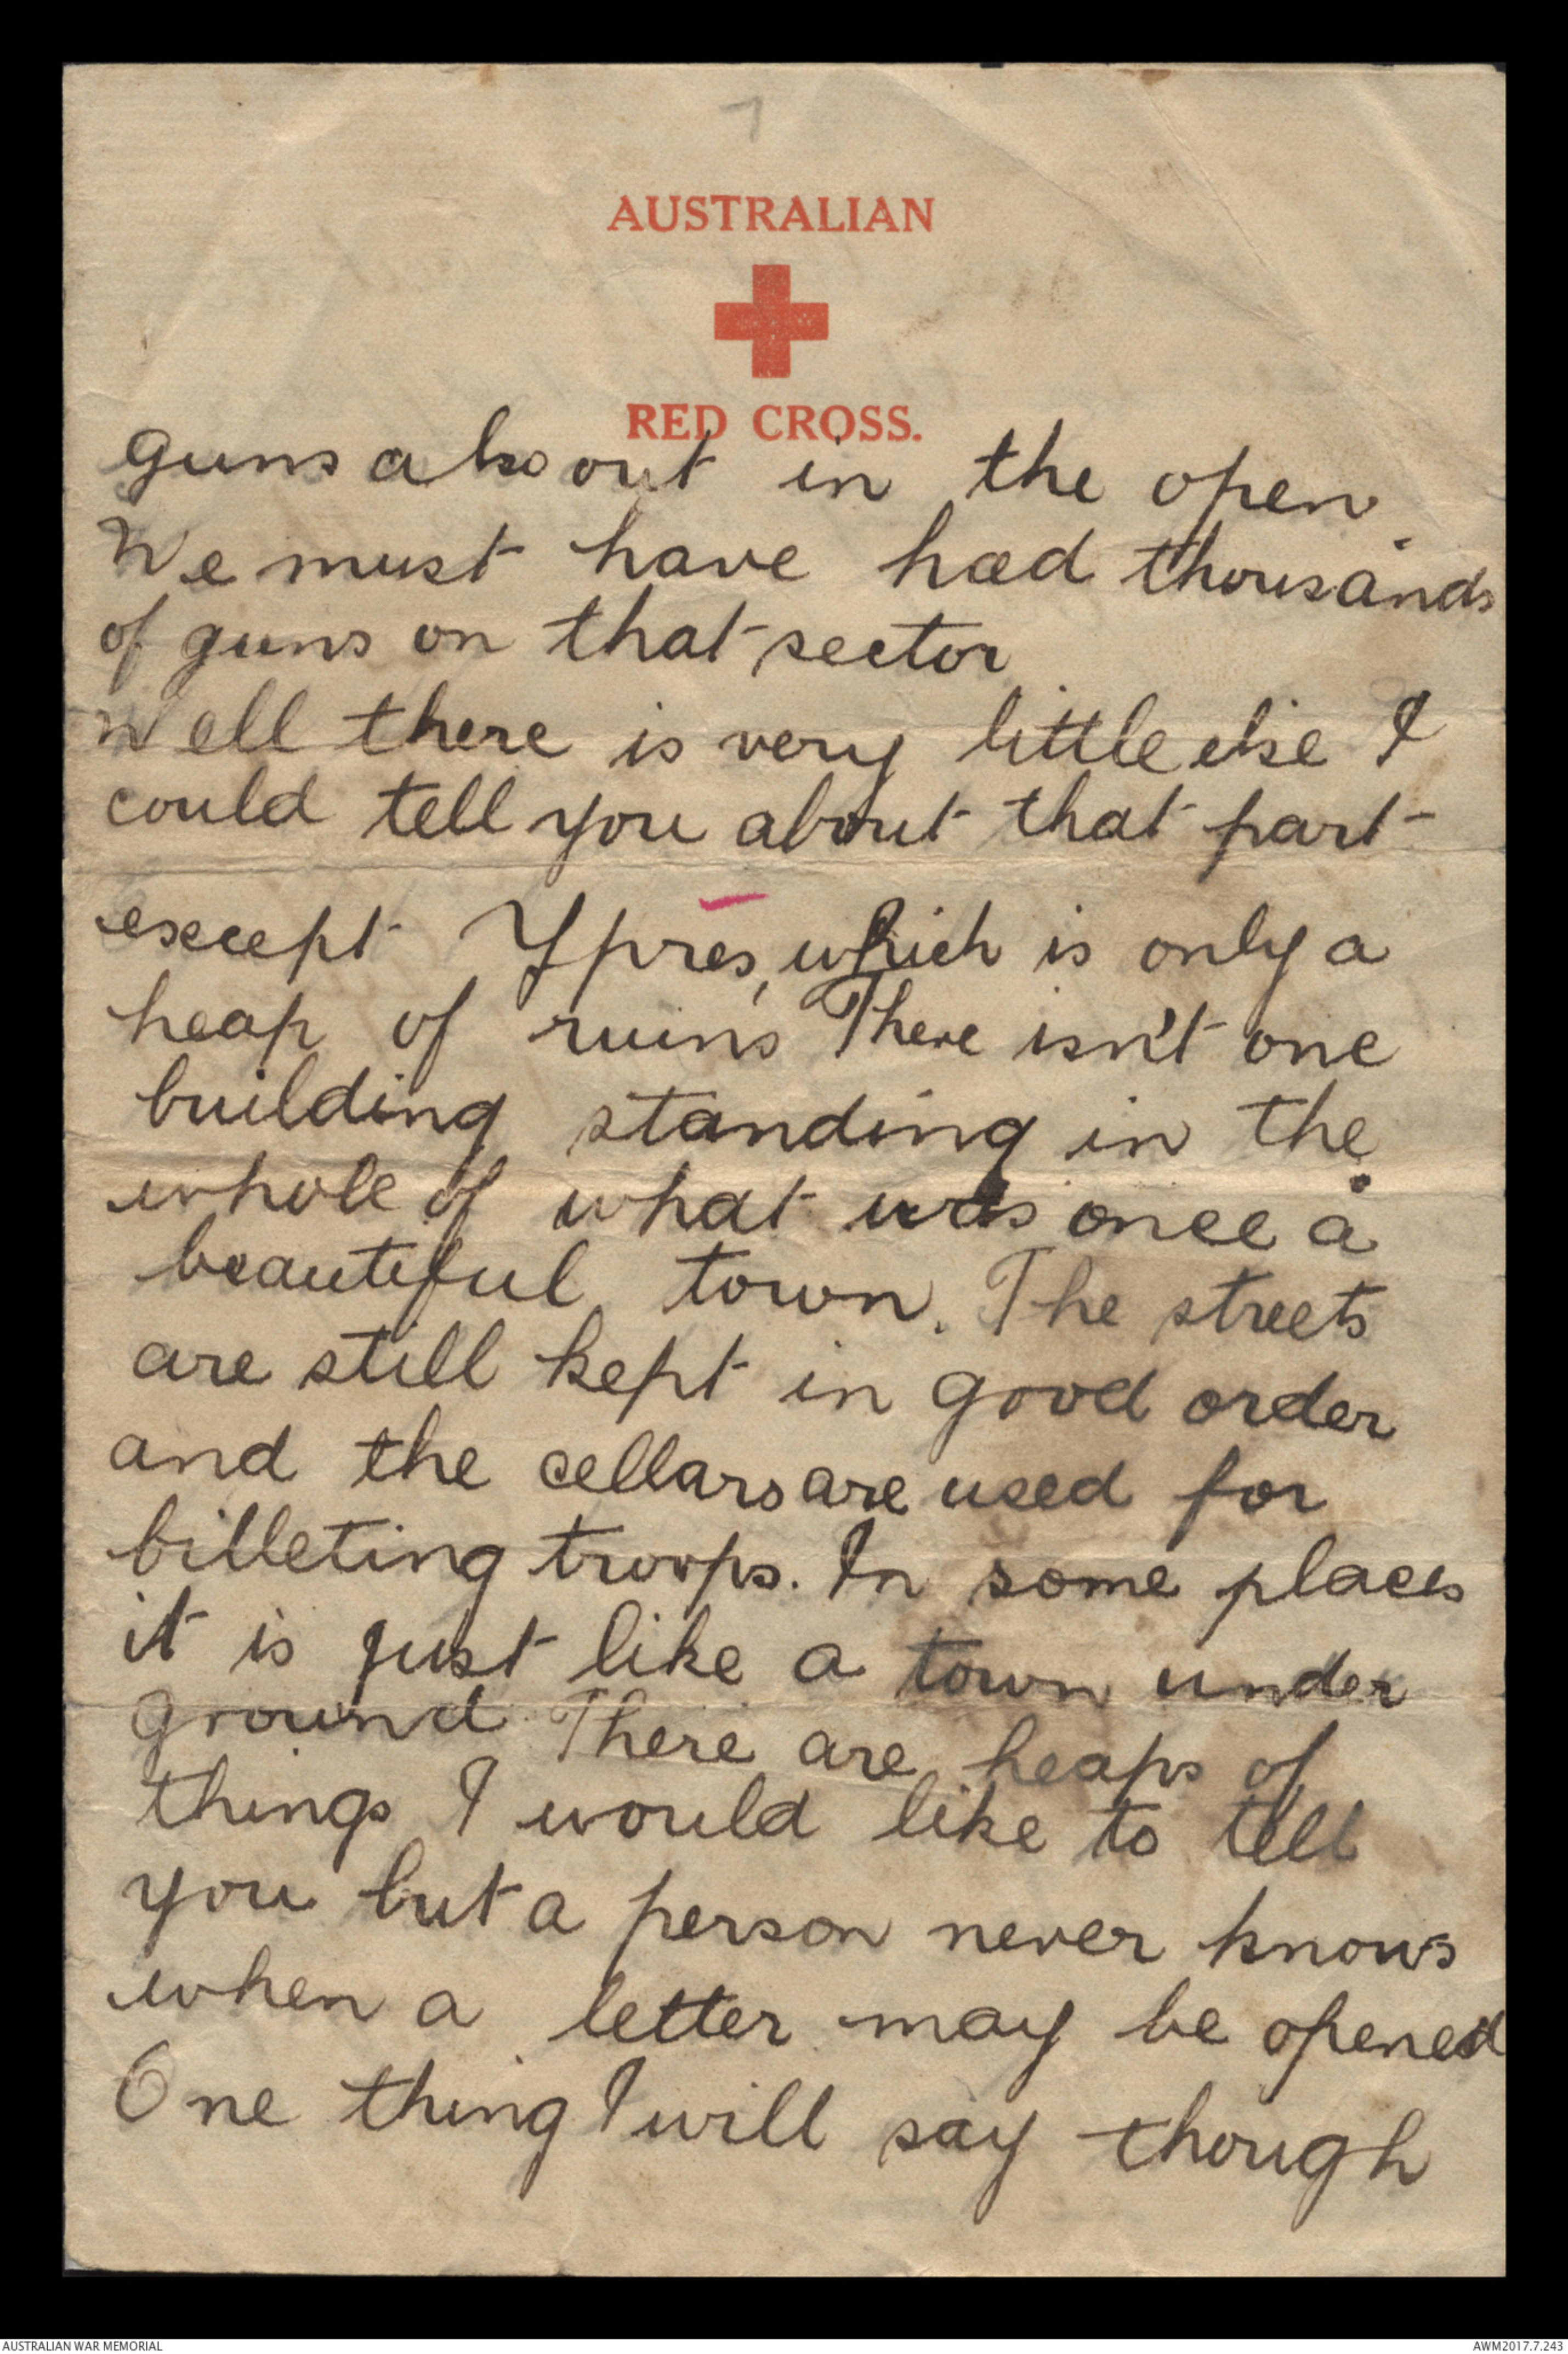 7
AUSTRALIAN
RED CROSS.
guns also out in the open.
We must have had thousands
of guns on that sector
Well there is very little else I
could tell you about that part
except Ypres, which is only a
heap of ruins There isn't one
building standing in the
whole of what was once a
beautiful town. The streets
are still kept in good order
and the cellars are used for
billeting troops. In some places
it is just like a town under
ground. There are heaps of
things I would like to tell
you but a person never knows
when a letter may be opened
One thing I will say though
AUSTRALIAN WAR MEMORIAL
AWM2017.7.243